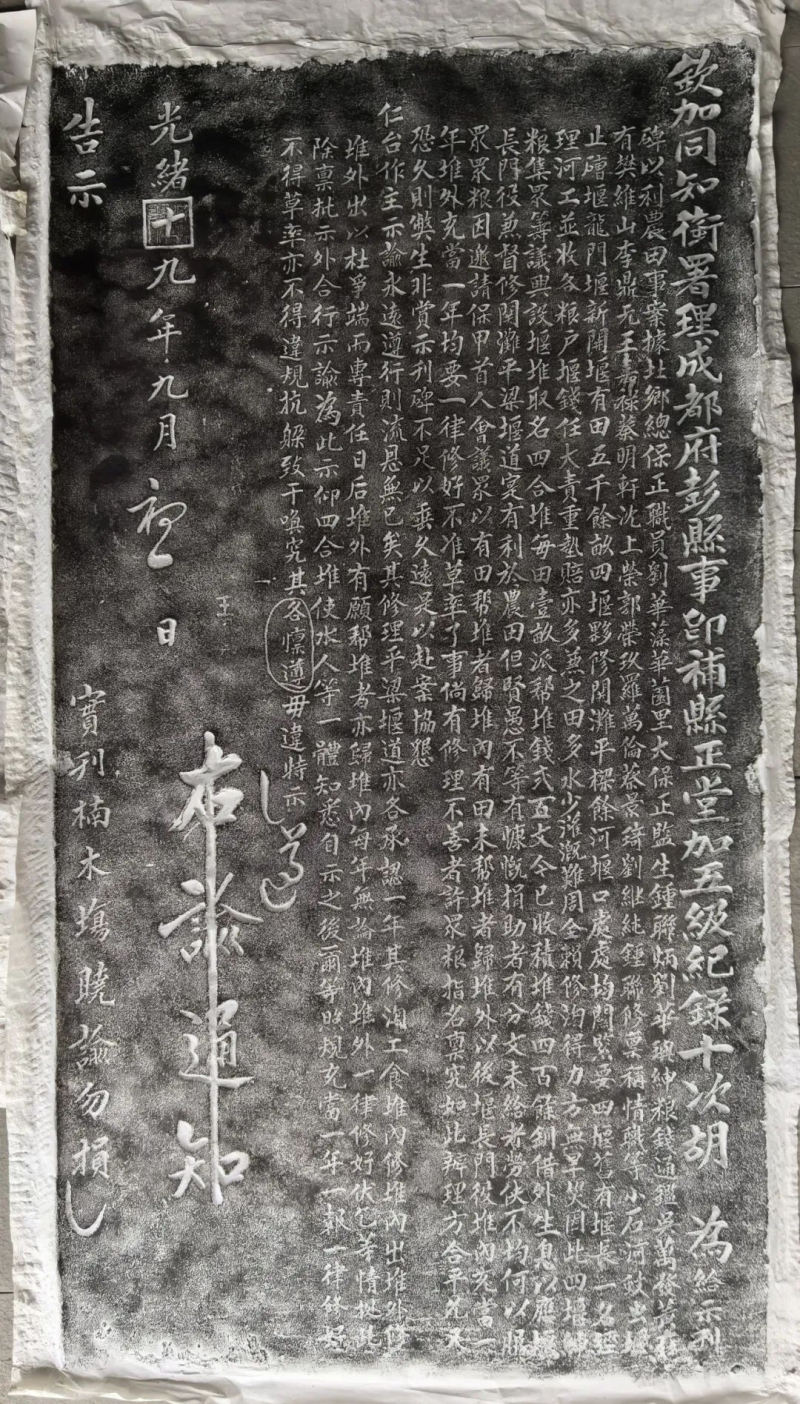 欽加同知銜署理成都府彭縣事即補縣正堂加五級紀錄十次胡 為給示刊
碑以利農田事案據北鄉總保正職員劉華藻華薗里大保正監生鍾聯炳劉華璵紳粮錢通鑑吳萬發黃在
有樊維山李鼎元王嘉祿蔡明軒沈上榮郭榮玖羅萬倫蔡京綺劉繼純鍾聯修稟稱情職等小石河歧出堰
止磴堰龍門堰新開堰有田五千餘畝四堰夥修開灘平樑餘河堰口處處均關緊要四堰舊有堰長一名經
理河工並收各粮戶堰錢任大責重墊賠亦多兼之田多水少灌溉難周全賴修淘得力方無旱災因此四堰紳
粮集眾籌議興設堰堆取名四合堆每田壹畝派幫堆錢弍百文今已收積堆錢四百餘釧借外生息以應堰
長門役兼督修開灘平梁堰道寔有利於農田但賢愚不等有慷慨捐助者有分文未給者勞佚不均何以服
眾眾粮因邀請保甲首人會議眾以有田幫堆者歸堆內有田未幫堆者歸堆外以後堰長門役堆內充當一
年堆外充當一年均要一律修好不准草率了事倘有修理不善者許眾粮指名稟究如此辦理方合平允又
恐久則弊生非賞示刊碑不足以垂久遠是以赴案協懇
仁台作主示諭永遠遵行則流恩無已矣其修理平梁堰道亦各承認一年其修淘工食堆內修堆內出堆外修
堆外出以杜爭端而專責任日后堆外有願幫堆者亦歸堆內每年無論堆內堆外一律修好伏乞等情據此
除稟批示外合行示諭為此示仰四合堆使水人等一體知悉自示之後爾等照規充當一年一報一律修好
不得草率亦不得違規抗躱致干喚究其各懔遵毋違特示
遵
右諭通知
光緒十九年九月初一日
告示
實刊楠木塲曉諭勿損